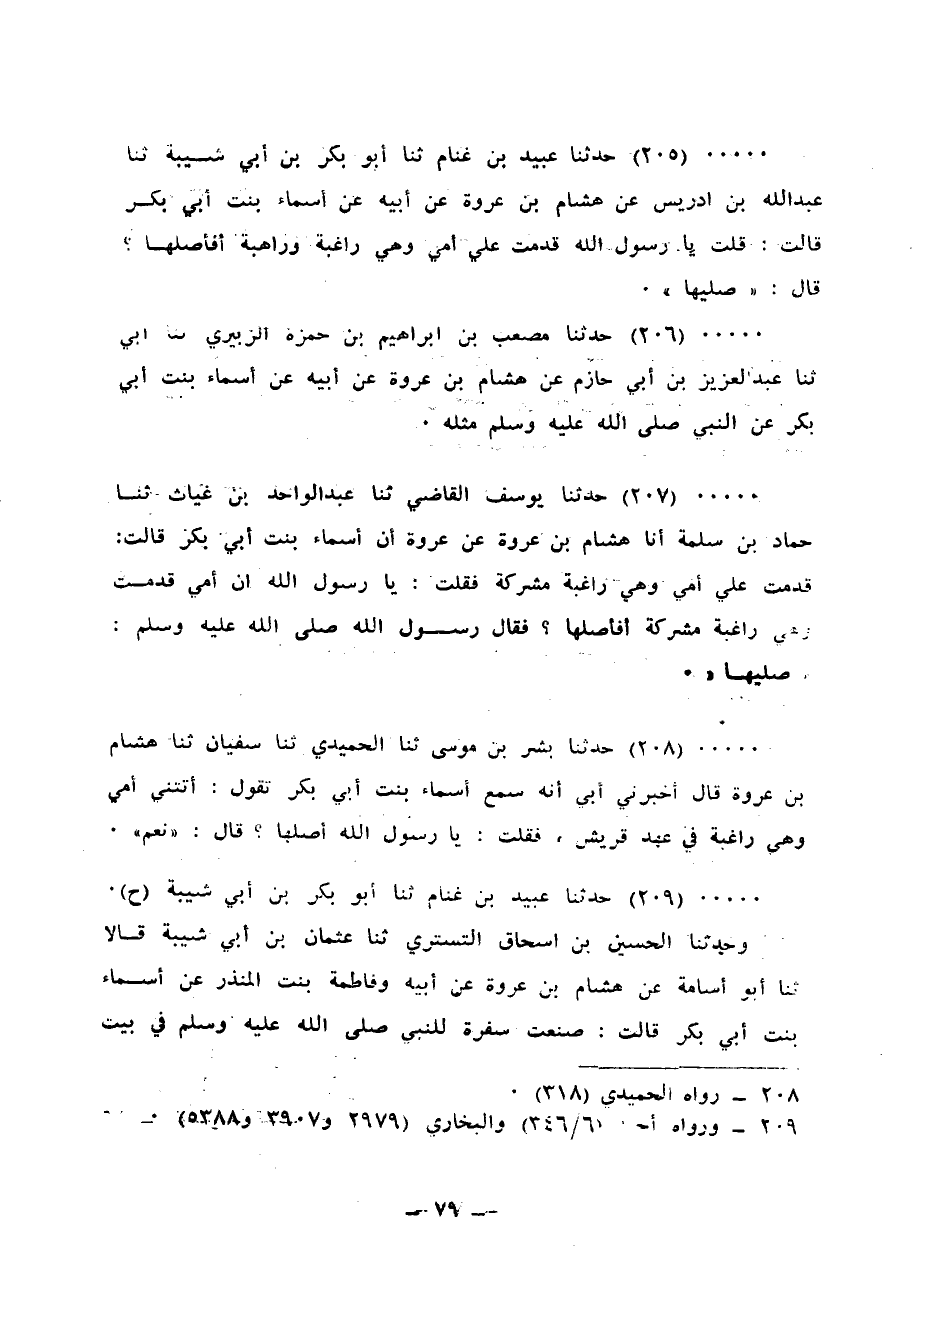 ..... (٢٠٥) حدثنا عبيد بن غنام ثنا أبو بكر بن أبي شيبة ثنا
عبدالله بن ادريس عن هشام بن عروة عن أبيه عن أسماء بنت أبي بكر
قالت : قلت يا رسول الله قدمت علي أمي وهي راغبة وراهبة أفأصلها ؟
قال : « صليها » ٠
..... (٢٠٦) حدثنا مصعب بن ابراهيم بن حمزة الزبيري ثنا ابي
ثنا عبدالعزيز بن أبي حازم عن هشام بن عروة عن أبيه عن أسماء بنت أبي
بكر عن النبي صلى الله عليه وسلم مثله ٠
..... (٢٠٧) حدثنا يوسف القاضي ثنا عبدالواحد بن غياث ثنا
حماد بن سلمة أنا هشام بن عروة عن عروة أن أسماء بنت أبي بكر قالت:
قدمت علي أمي وهي راغبة مشركة فقلت : يا رسول الله ان أمي قدمت
وهي راغبة مشركة أفأصلها ؟ فقال رسول الله صلى الله عليه وسلم :
صليها » ٠
..... (٢٠٨) حدثنا بشر بن موسى ثنا الحميدي ثنا سفيان ثنا هشام
بن عروة قال أخبرني أبي أنه سمع أسماء بنت أبي بكر تقول : أتتني أمي
وهي راغبة في عهد قريش ، فقلت : يا رسول الله أصلها ؟ قال : «نعم» ٠
..... (٢٠٩) حدثنا عبيد بن غنام ثنا أبو بكر بن أبي شيبة (ح)٠
وحدثنا الحسين بن اسحاق التستري ثنا عثمان بن أبي شيبة قالا
ثنا أبو أسامة عن هشام بن عروة عن أبيه وفاطمة بنت المنذر عن أسماء
بنت أبي بكر قالت : صنعت سفرة للنبي صلى الله عليه وسلم في بيت
٢٠٨ ــ رواه الحميدي (٣١٨) ٠
٢٠٩ ــ ورواه (٣٤٦/٦) والبخاري (٢٩٧٩ و٣٩٠٧ و٥٣٨٨) ٠
ــ ٧٩ ــ